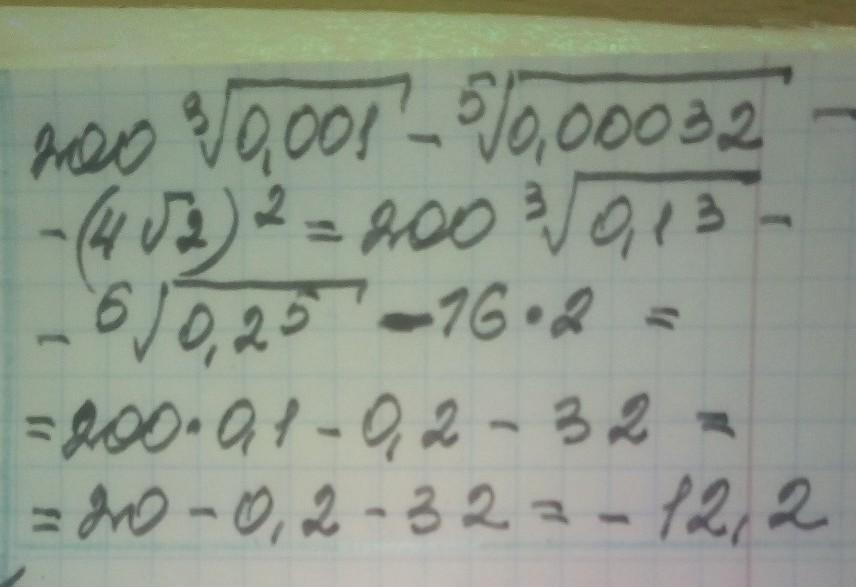 200 ³√0,001 - ⁵√0,00032 -
- (4√2)² = 200 ³√0,1³ -
- ⁵√0,2⁵ - 16 · 2 =
= 200 · 0,1 - 0,2 - 32 =
= 20 - 0,2 - 32 = - 12,2